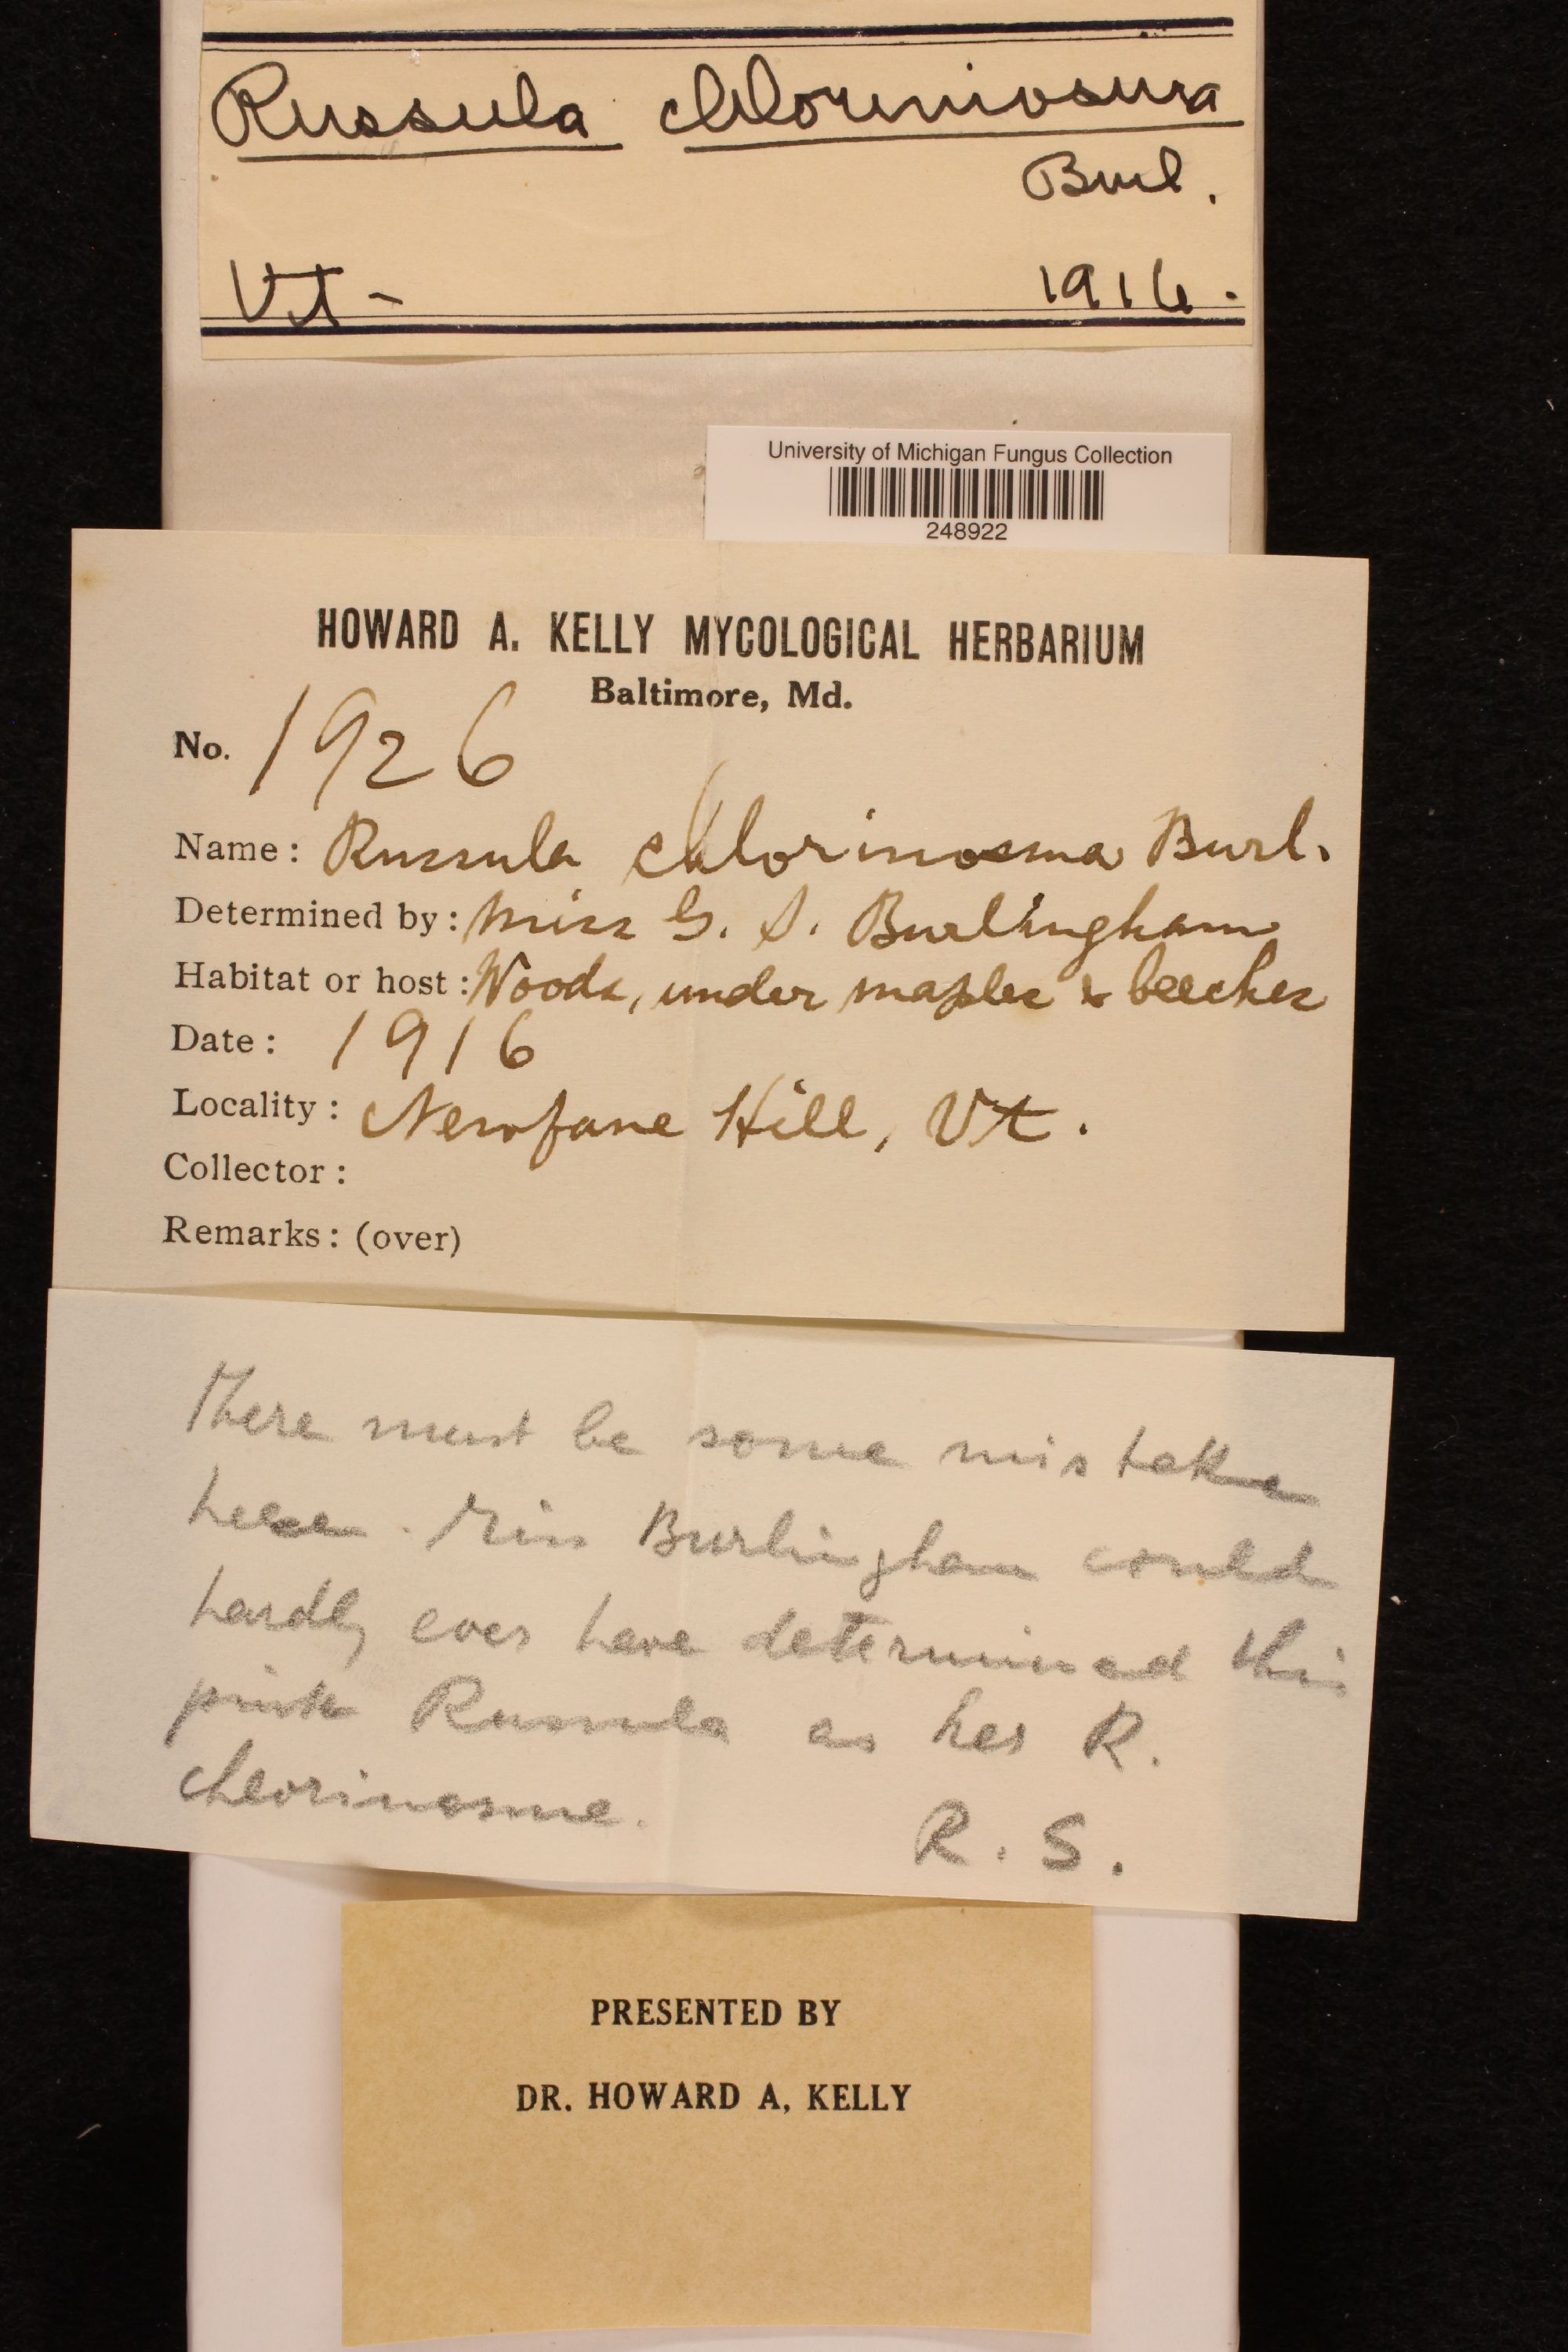 Russula chloriniosma
Burl.
Vt - 1916.
University of Michigan Fungus Collection
248922
HOWARD A. KELLY MYCOLOGICAL HERBARIUM
Baltimore, Md.
No. 1926
Name: Russula chlorinosma Burl.
Determined by: Miss G. S. Burlingham
Habitat or host: Woods, under maples & beeches
Date: 1916
Locality: Newfane Hill, Vt.
Collector:
Remarks: (over)
There must be some mistake
here. Miss Burlingham could
hardly ever have determined this
pink Russula as her R.
chlorinosma.
R. S.
PRESENTED BY
DR. HOWARD A. KELLY